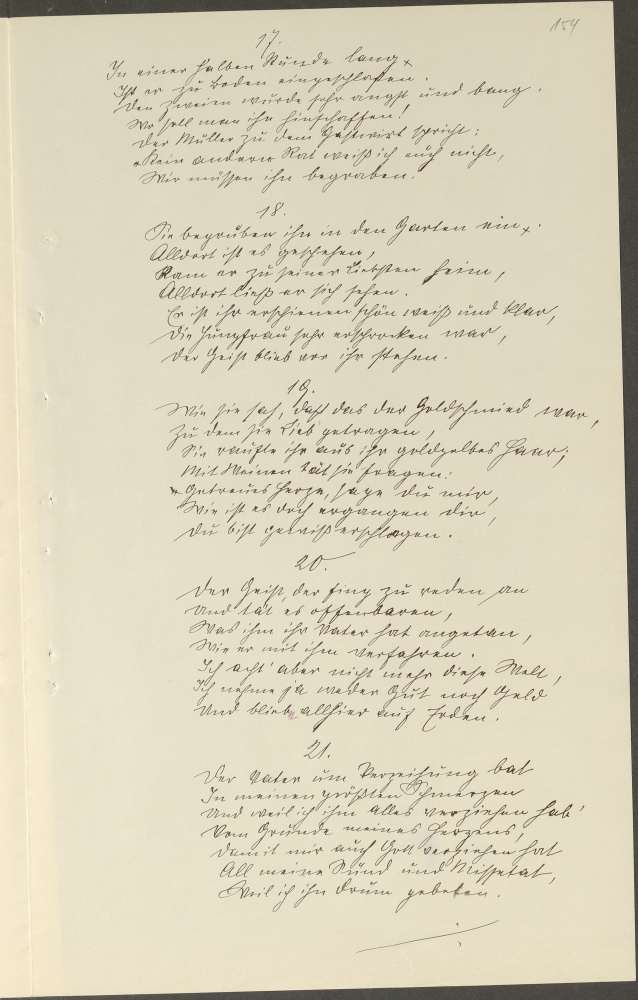 154
17.
In einer halben Stunde lang
Ist er zu Boden eingeschlafen.
Den Zweien wurde sehr angst und bang.
Wo soll man ihn hinschaffen!
Der Müller zu dem Gastwirt spricht:
"Kein andern Rat weiß ich auch nicht,
Wir müssen ihn begraben."
18.
Sie begruben ihn in den Garten ein,
Alldort ist es geschehen,
Kam er zu seiner Liebsten heim,
Alldort ließ er sich sehen.
Er ist ihr erschienen schön weiß und klar,
Die Jungfrau sehr erschrocken war,
Der Geist blieb vor ihr stehen.
19.
Wie sie sah, daß das der Goldschmied war,
Zu dem sie Lieb getragen,
Sie raufte ihr aus ihr goldgelbes Haar;
Mit Weinen tät sie fragen:
"Getreues Herze, sage du mir,
Wie ist es doch ergangen dir,
Du bist gewiß erschlagen.
20.
Der Geist, der fing zu reden an
Und tät es offenbaren,
Was ihm ihr Vater hat angetan,
Wie er mit ihm verfahren.
Ich acht' aber nicht mehr diese Welt,
Ich nehme ja weder Gut noch Geld
Und blieb allhier auf Erden.
21.
Der Vater um Verzeihung bat
In meinen größten Schmerzen
Und weil ich ihm alles verziehen hab'
Vom Grunde meines Herzens,
Damit mir auch Gott verziehen hat
All meine Sünd und Missetat,
Weil ich ihn drum gebeten.